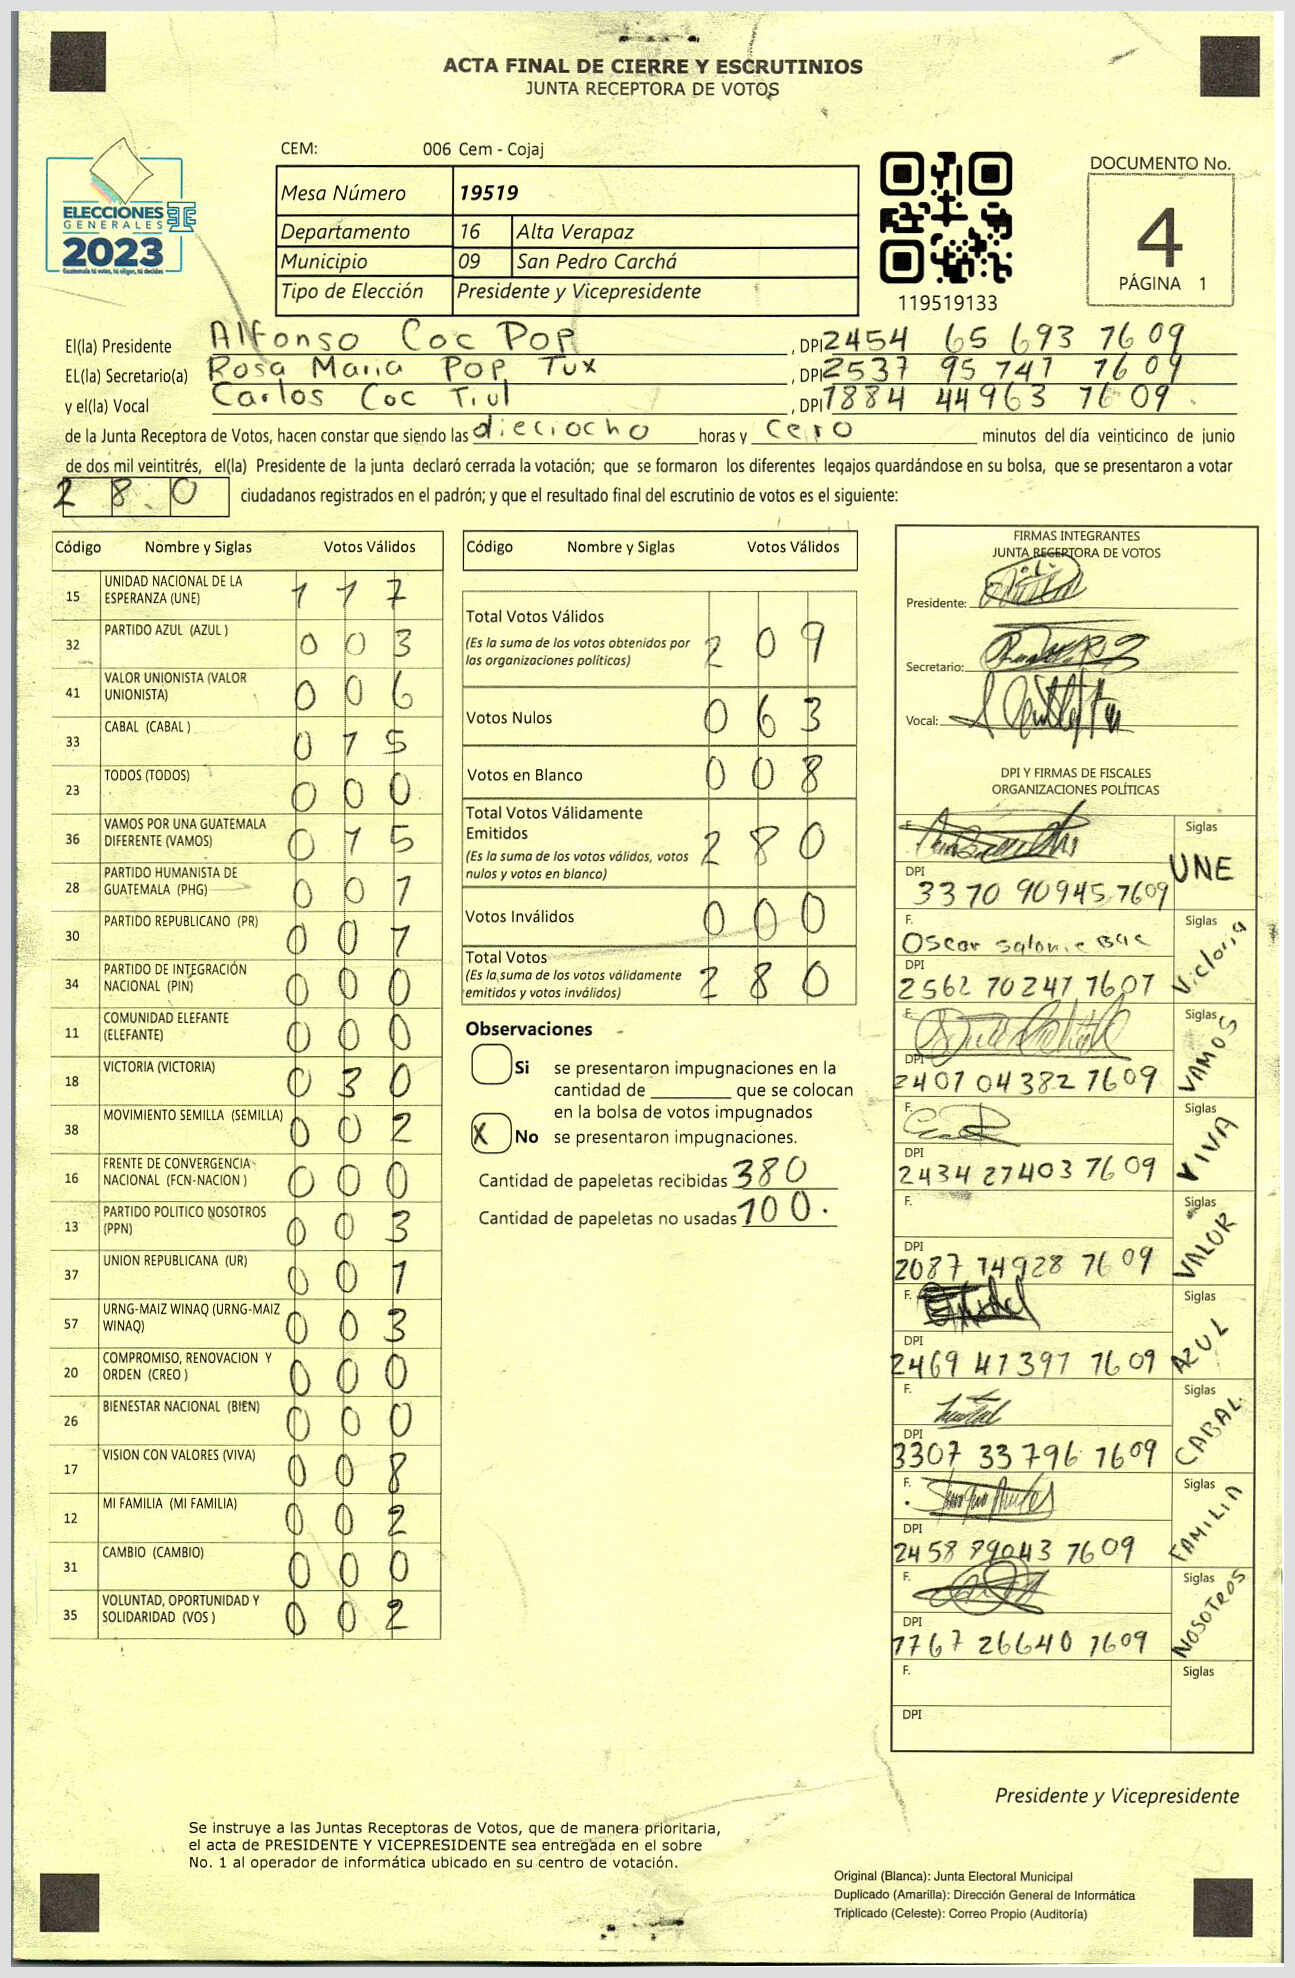 ACTA FINAL DE CIERRE Y ESCRUTINIOS
JUNTA RECEPTORA DE VOTOS
ELECCIONES
GENERALES
2023
Guatemala tú votas, tú eliges, tú decides
CEM: 006 Cem - Cojaj
Mesa Número 19519
Departamento 16 Alta Verapaz
Municipio 09 San Pedro Carchá
Tipo de Elección Presidente y Vicepresidente
119519133
DOCUMENTO No.
4
PÁGINA 1
El(la) Presidente Alfonso Coc Pop , DPI 2454 65 693 7609
EL(la) Secretario(a) Rosa Maria Pop Tux , DPI 2537 95 747 7609
y el(la) Vocal Carlos Coc Tiul , DPI 1884 44963 7609
de la Junta Receptora de Votos, hacen constar que siendo las dieciocho horas y cero minutos del día veinticinco de junio
de dos mil veintitrés, el(la) Presidente de la junta declaró cerrada la votación; que se formaron los diferentes legajos guardándose en su bolsa, que se presentaron a votar
280 ciudadanos registrados en el padrón; y que el resultado final del escrutinio de votos es el siguiente:
Código Nombre y Siglas Votos Válidos
15 UNIDAD NACIONAL DE LA ESPERANZA (UNE) 117
32 PARTIDO AZUL (AZUL ) 003
41 VALOR UNIONISTA (VALOR UNIONISTA) 006
33 CABAL (CABAL ) 015
23 TODOS (TODOS) 000
36 VAMOS POR UNA GUATEMALA DIFERENTE (VAMOS) 015
28 PARTIDO HUMANISTA DE GUATEMALA (PHG) 001
30 PARTIDO REPUBLICANO (PR) 001
34 PARTIDO DE INTEGRACIÓN NACIONAL (PIN) 000
11 COMUNIDAD ELEFANTE (ELEFANTE) 000
18 VICTORIA (VICTORIA) 030
38 MOVIMIENTO SEMILLA (SEMILLA) 002
16 FRENTE DE CONVERGENCIA NACIONAL (FCN-NACION ) 000
13 PARTIDO POLITICO NOSOTROS (PPN) 003
37 UNION REPUBLICANA (UR) 001
57 URNG-MAIZ WINAQ (URNG-MAIZ WINAQ) 003
20 COMPROMISO, RENOVACION Y ORDEN (CREO ) 000
26 BIENESTAR NACIONAL (BIEN) 000
17 VISION CON VALORES (VIVA) 008
12 MI FAMILIA (MI FAMILIA) 002
31 CAMBIO (CAMBIO) 000
35 VOLUNTAD, OPORTUNIDAD Y SOLIDARIDAD (VOS ) 002
Código Nombre y Siglas Votos Válidos
Total Votos Válidos 209
(Es la suma de los votos obtenidos por
las organizaciones políticas)
Votos Nulos 063
Votos en Blanco 008
Total Votos Válidamente
Emitidos 280
(Es la suma de los votos válidos, votos
nulos y votos en blanco)
Votos Inválidos 000
Total Votos 280
(Es la suma de los votos válidamente
emitidos y votos inválidos)
Observaciones
Si se presentaron impugnaciones en la
cantidad de ________ que se colocan
en la bolsa de votos impugnados
X No se presentaron impugnaciones.
Cantidad de papeletas recibidas 380
Cantidad de papeletas no usadas 100.
FIRMAS INTEGRANTES
JUNTA RECEPTORA DE VOTOS
Presidente:
Secretario:
Vocal:
DPI Y FIRMAS DE FISCALES
ORGANIZACIONES POLÍTICAS
F. Siglas
UNE
DPI
3370 90945 7609
F. Siglas
Oscar Salomie Bac
Victoria
DPI
2562 70247 7607
F. Siglas
VAMOS
DPI
2401 04382 7609
F. Siglas
VIVA
DPI
2434 27403 7609
F. Siglas
VALOR
DPI
2087 14928 7609
F. Siglas
AZUL
DPI
2469 41397 7609
F. Siglas
CABAL
DPI
3307 33796 7609
F. Siglas
FAMILIA
DPI
2458 89043 7609
F. Siglas
NOSOTROS
DPI
1767 26640 1609
F. Siglas
DPI
Presidente y Vicepresidente
Se instruye a las Juntas Receptoras de Votos, que de manera prioritaria,
el acta de PRESIDENTE Y VICEPRESIDENTE sea entregada en el sobre
No. 1 al operador de informática ubicado en su centro de votación.
Original (Blanca): Junta Electoral Municipal
Duplicado (Amarilla): Dirección General de Informática
Triplicado (Celeste): Correo Propio (Auditoría)